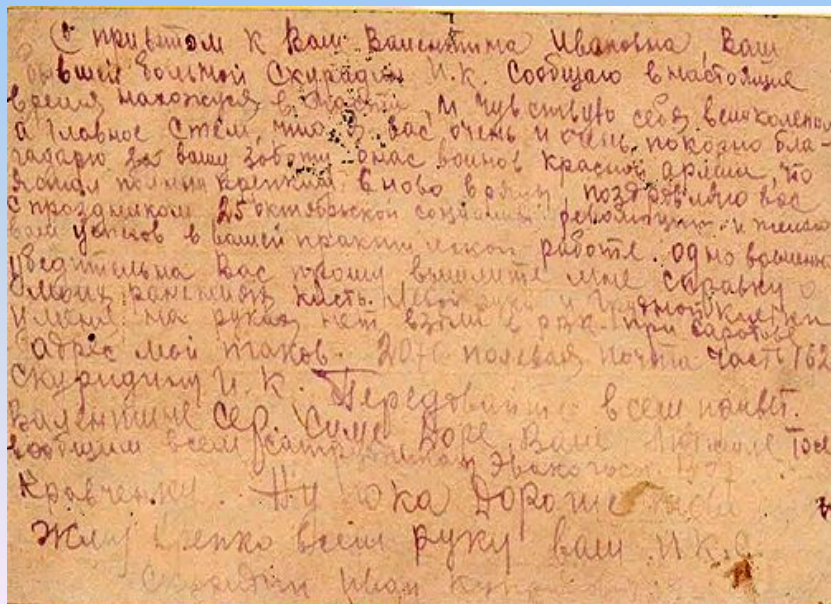 С приветом к Вам Валентина Ивановна, Ваш
бывшей больной Скурадин И.К. Сообщаю внастоящие
время нахожуся в части, и чувствую себя великолепно
а главное стем, что я вас очень и очень покорно бла-
гадарю за вашу заботу онас воинов красной армии, что
я стал полным крепким вново поздровляю вас
спроздником 25 октябрьской революции и желаю
вам успехов в вашей практической работе. одно временно
убедительна Вас прошу вышлите мне справку о
моих ранениях кисть левой руки и грудной клетки
уменя на руках нет взяли в при саротове
адрес мой таков. 2076 полевая почта часть 162
Скуридину И.К. Передовайте всем привет.
Валентине Сер. Симе Доре Вале Тосе
вообщим всем
Кровченку. Ну пока Дорогие
Жму крепко всем руку ваш И.К.С.
Скурадин Иван